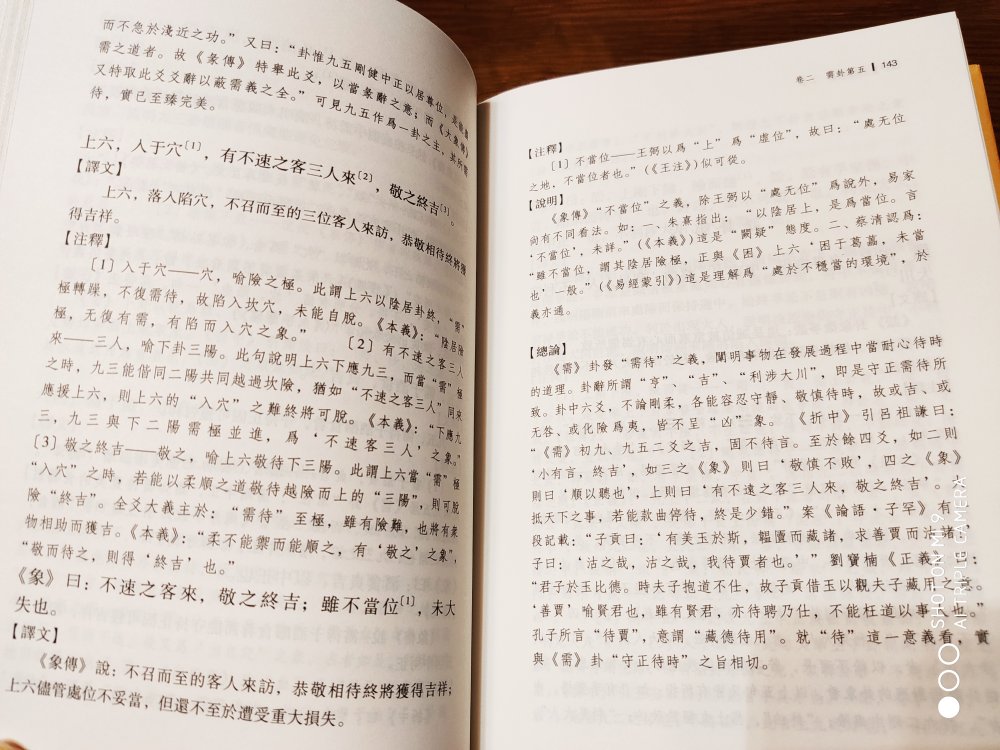 而不急於淺近之功。”又曰：“卦惟九五剛健中正以居尊位，
需之道者。故《彖傳》特舉此爻，以當彖辭之意；而《大象傳》
又特取此爻爻辭以蔽需義之全。”可見九五作爲一卦之主，其所需
待，實已至臻完美。
上六，入于穴[1]，有不速之客三人來[2]，敬之終吉[3]。
【譯文】
上六，落入陷穴，不召而至的三位客人來訪，恭敬相待終將獲
得吉祥。
【注釋】
〔1〕入于穴——穴，喻險之極。此謂上六以陰居卦終，“需”
極轉躁，不復需待，故陷入坎穴，未能自脫。《本義》：“陰居險
極，无復有需，有陷而入穴之象。” 〔2〕有不速之客三人
來——三人，喻下卦三陽。此句說明上六下應九三，而當“需”極
之時，九三能偕同二陽共同越過坎險，猶如“不速之客三人”同來
應援上六，則上六的“入穴”之難終將可脫。《本義》：“下應九
三，九三與下二陽需極並進，爲‘不速客三人’之象。”
〔3〕敬之終吉——敬之，喻上六敬待下三陽。此謂上六當“需”極
“入穴”之時，若能以柔順之道敬待越險而上的“三陽”，則可脫
險“終吉”。全爻大義主於：“需待”至極，雖有險難，也將有衆
物相助而獲吉。《本義》：“柔不能禦而能順之，有‘敬之’之象”，
“敬而待之，則得‘終吉’也。”
《象》曰：不速之客來，敬之終吉；雖不當位[1]，未大
失也。
【譯文】
《象傳》說：不召而至的客人來訪，恭敬相待終將獲得吉祥；
上六儘管處位不妥當，但還不至於遭受重大損失。
卷二 需卦第五 143
【注釋】
〔1〕不當位——王弼以爲“上”爲“虛位”，故曰：“處无位
之地，不當位者也。”（《王注》）似可從。
【說明】
《象傳》“不當位”之義，除王弼以“處无位”爲說外，易家
尚有不同看法。如：一、朱熹指出：“以陰居上，是爲當位。言
‘不當位’，未詳。”（《本義》）這是“闕疑”態度。二、蔡清認爲：
“雖不當位，謂其陰居險極，正與《困》上六‘困于葛藟，未當
也’一般。”（《易經蒙引》）這是理解爲“處於不穩當的環境”，於
義亦通。
【總論】
《需》卦發“需待”之義，闡明事物在發展過程中當耐心待時
的道理。卦辭所謂“亨”、“吉”、“利涉大川”，即是守正需待所
致。卦中六爻，不論剛柔，各能容忍守靜、敬慎待時，故或吉、或
无咎、或化險爲夷，皆不呈“凶”象。《折中》引呂祖謙曰：
“《需》初九、九五二爻之吉，固不待言。至於餘四爻，如二則
‘小有言，終吉’，如三之《象》則曰‘敬慎不敗’，四之《象》
則曰‘順以聽也’，上則曰‘有不速之客三人來，敬之終吉’。大
抵天下之事，若能款曲停待，終是少錯。”案《論語·子罕》有一
段記載：“子貢曰：‘有美玉於斯，韞匵而藏諸，求善賈而沽諸？’
子曰：‘沽之哉，沽之哉，我待賈者也。’”劉寶楠《正義》曰：
“君子於玉比德。時夫子抱道不仕，故子貢借玉以觀夫子藏用之意。
‘善賈’喻賢君也，雖有賢君，亦待聘乃仕，不能枉道以事人也。”
孔子所言“待賈”，意謂“藏德待用”。就“待”這一意義看，實
與《需》卦“守正待時”之旨相切。
SHOT ON MI 9
AI TRIPLE CAMERA